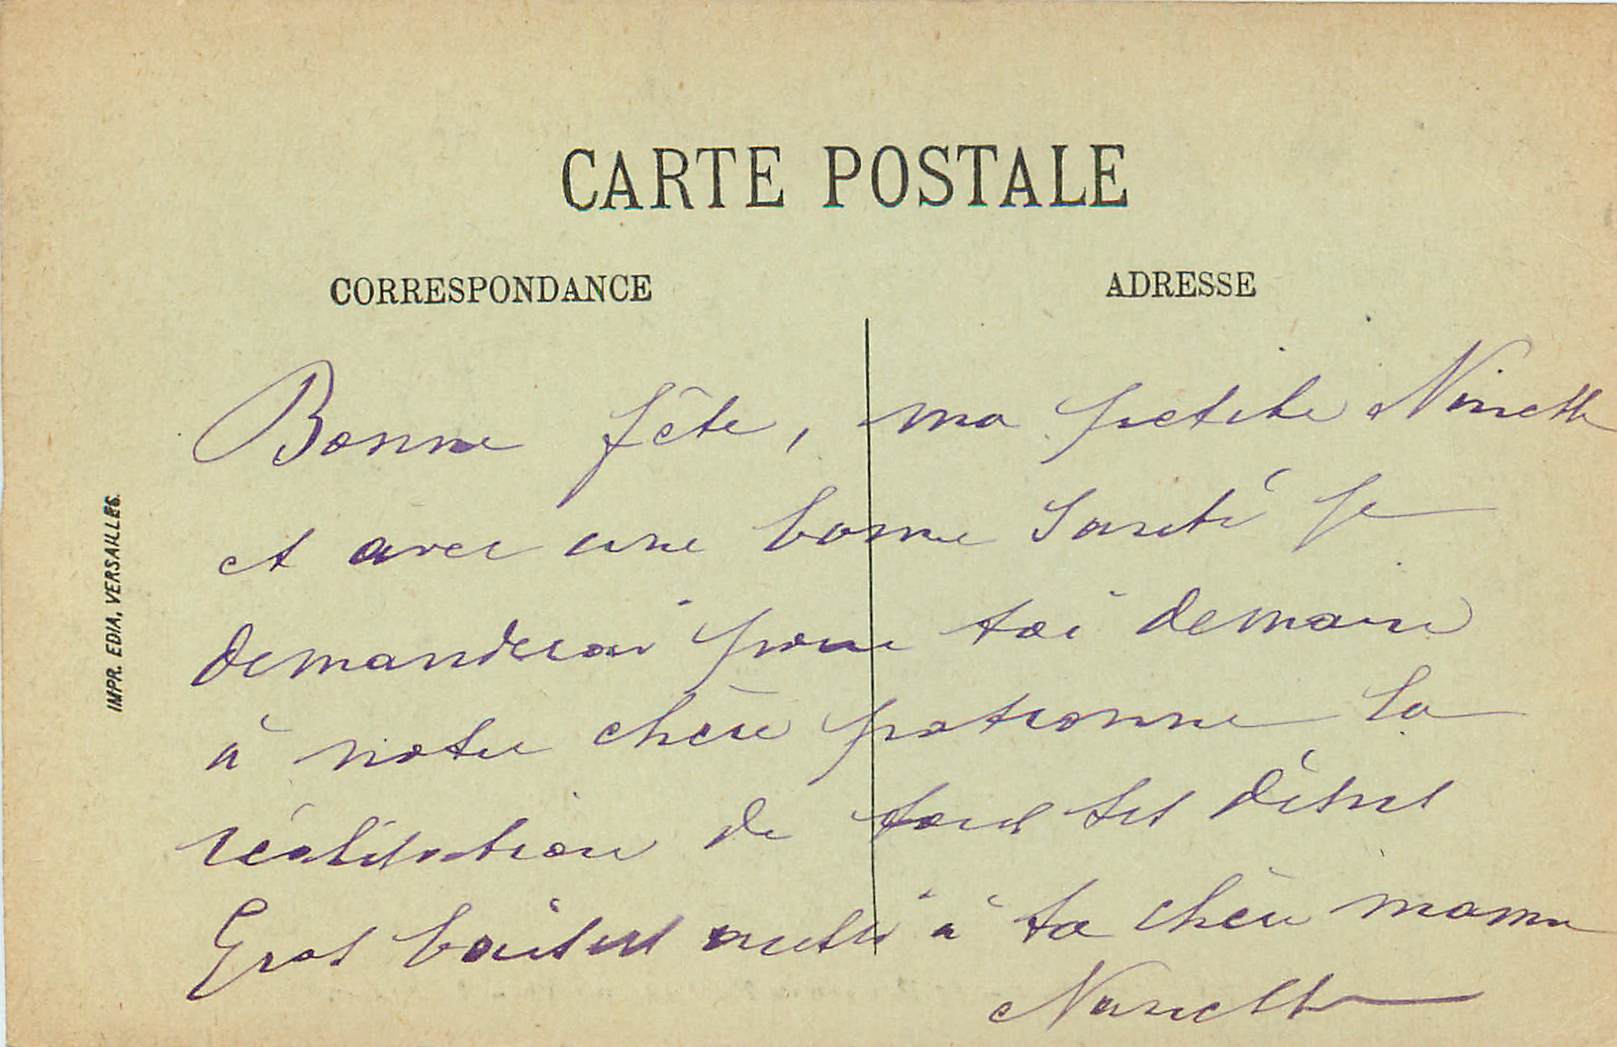 CARTE POSTALE
CORRESPONDANCE
ADRESSE
Bonne fête, ma petite Ninette
et avec une bonne Santé je
demanderai pour toi demain
à notre chère patronne la
réalisation de tous tes désirs
Gros baisers aussi à ta chère maman
Nanette
IMPR. EDIA, VERSAILLES.